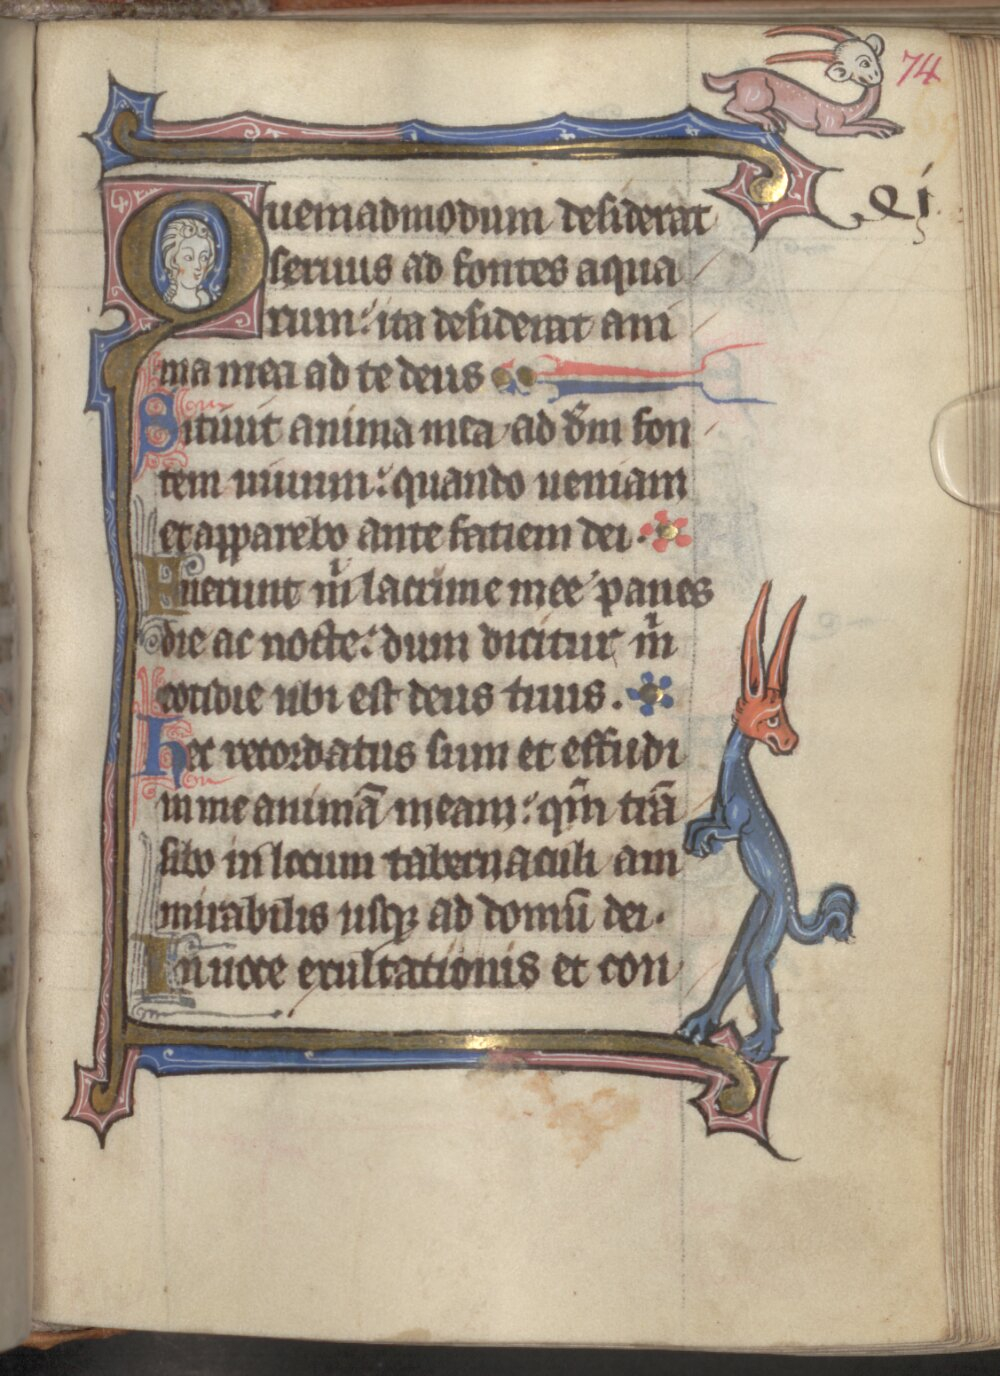 74
xli
Quemadmodum desiderat
seruus ad fontes aqua
rum: ita desiderat ani
ma mea ad te deus
Sitiuit anima mea ad dm̄ fon
tem uiuum: quando ueniam
et apparebo ante fatiem dei.
Fuerunt m̄ lacrime mee panes
die ac nocte: dum dicitur m̄
cotidie ubi est deus tuus.
Hec recordatus sum et effudi
in me animā meam: qm̄ trā
sibo in locum tabernaculi am
mirabilis usqꝫ ad domū dei.
In uoce exultationis et con